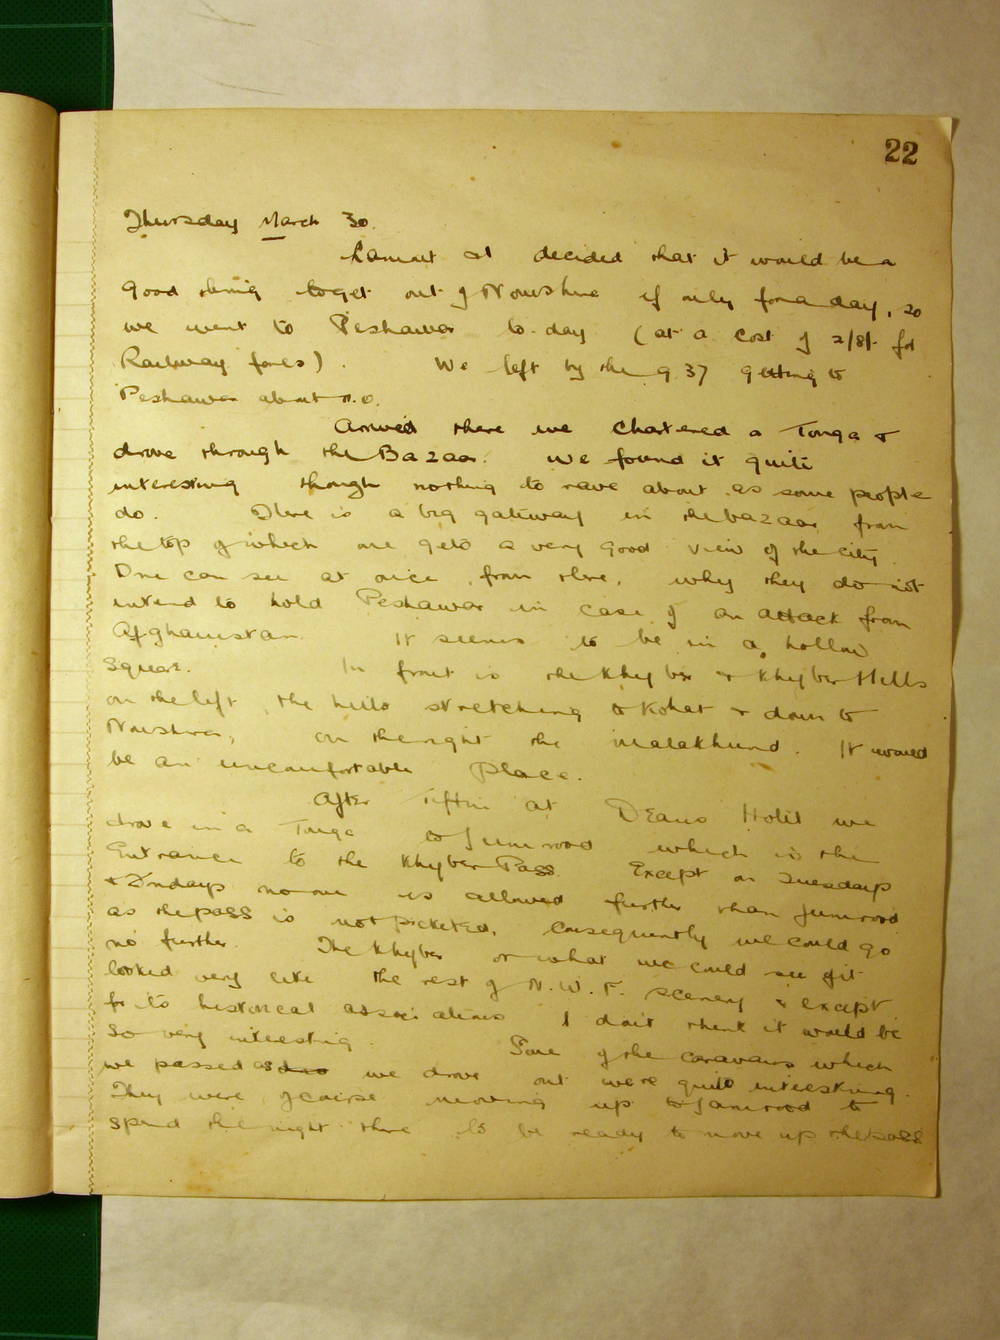 22
Thursday March 30.
Lamont & I decided that it would be a
good thing to get out of Nowshera if only for a day, so
we went to Peshawar to-day (at a cost of 2/8/- for
Railway fares). We left by the 9.37 getting to
Peshawar about 11.0.
Arrived there we chartered a Tonga &
drove through the Bazaar. We found it quite
interesting though nothing to rave about as some people
do. There is a big gateway in the bazaar from
the top of which one gets a very good view of the city.
One can see at once, from there, why they do not
intend to hold Peshawar in case of an attack from
Afghanistan. It seems to be in a hollow
square. In front is the Khyber & Khyber Hills
on the left, the hills stretching to Kohat & down to
Nowshera, on the right the Malakhand. It would
be an uncomfortable place.
After Tiffin at Deans Hotel we
drove in a Tonga to Jumrood which is the
Entrance to the Khyber Pass. Except on Tuesdays
& Fridays no one is allowed further than Jumrood
as the pass is not picketed, consequently we could go
no further. The Khyber or what we could see of it
looked very like the rest of N.W.F. scenery & except
for its historical associations I don't think it would be
so very interesting. Some of the caravans which
we passed as we drove out were quite interesting.
They were of course moving up to Jamrood to
spend the night there to be ready to move up the pass